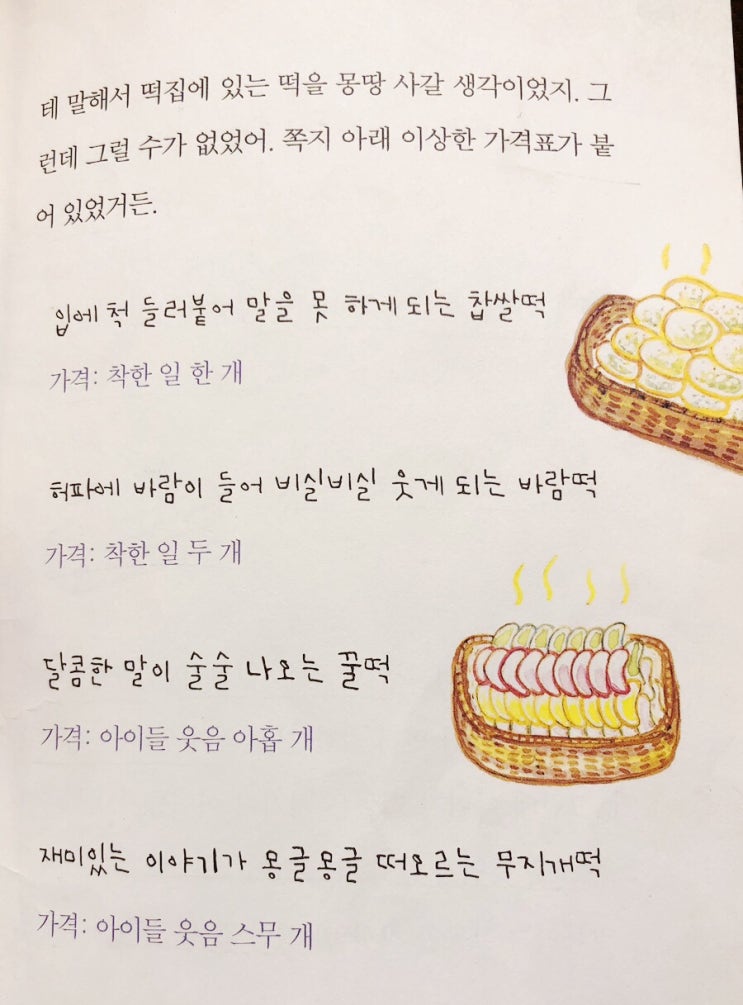 테 말해서 떡집에 있는 떡을 몽땅 사갈 생각이었지. 그
런데 그럴 수가 없었어. 쪽지 아래 이상한 가격표가 붙
어 있었거든.
입에 척 들러붙어 말을 못 하게 되는 찹쌀떡
가격: 착한 일 한 개
허파에 바람이 들어 비실비실 웃게 되는 바람떡
가격: 착한 일 두 개
달콤한 말이 술술 나오는 꿀떡
가격: 아이들 웃음 아홉 개
재미있는 이야기가 몽글몽글 떠오르는 무지개떡
가격: 아이들 웃음 스무 개